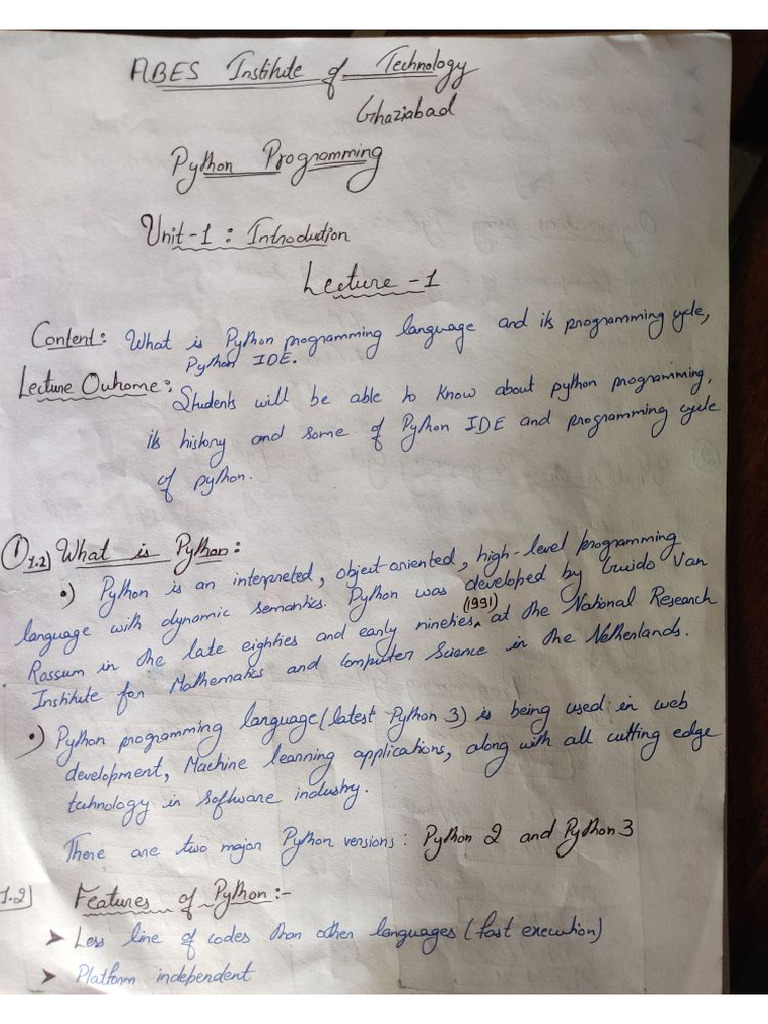 ABES Institute of Technology
Ghaziabad
Python Programming
Unit-1 : Introduction
Lecture -1
Content: What is Python programming language and its programming cycle,
Python IDE.
Lecture Outcome: Students will be able to know about python programming,
its history and some of Python IDE and programming cycle
of python.
① 1.2) What is Python:
•) Python is an interpreted, object-oriented, high-level programming
language with dynamic semantics. Python was developed by Guido Van
Rossum in the late eighties and early nineties (1991) at the National Research
Institute for Mathematics and Computer Science in the Netherlands.
•) Python programming language (latest Python 3) is being used in web
development, Machine learning applications, along with all cutting edge
technology in software industry.
There are two major Python versions: Python 2 and Python 3
1.2] Features of Python:-
➤ Less line of codes than other languages (fast execution)
➤ Platform independent